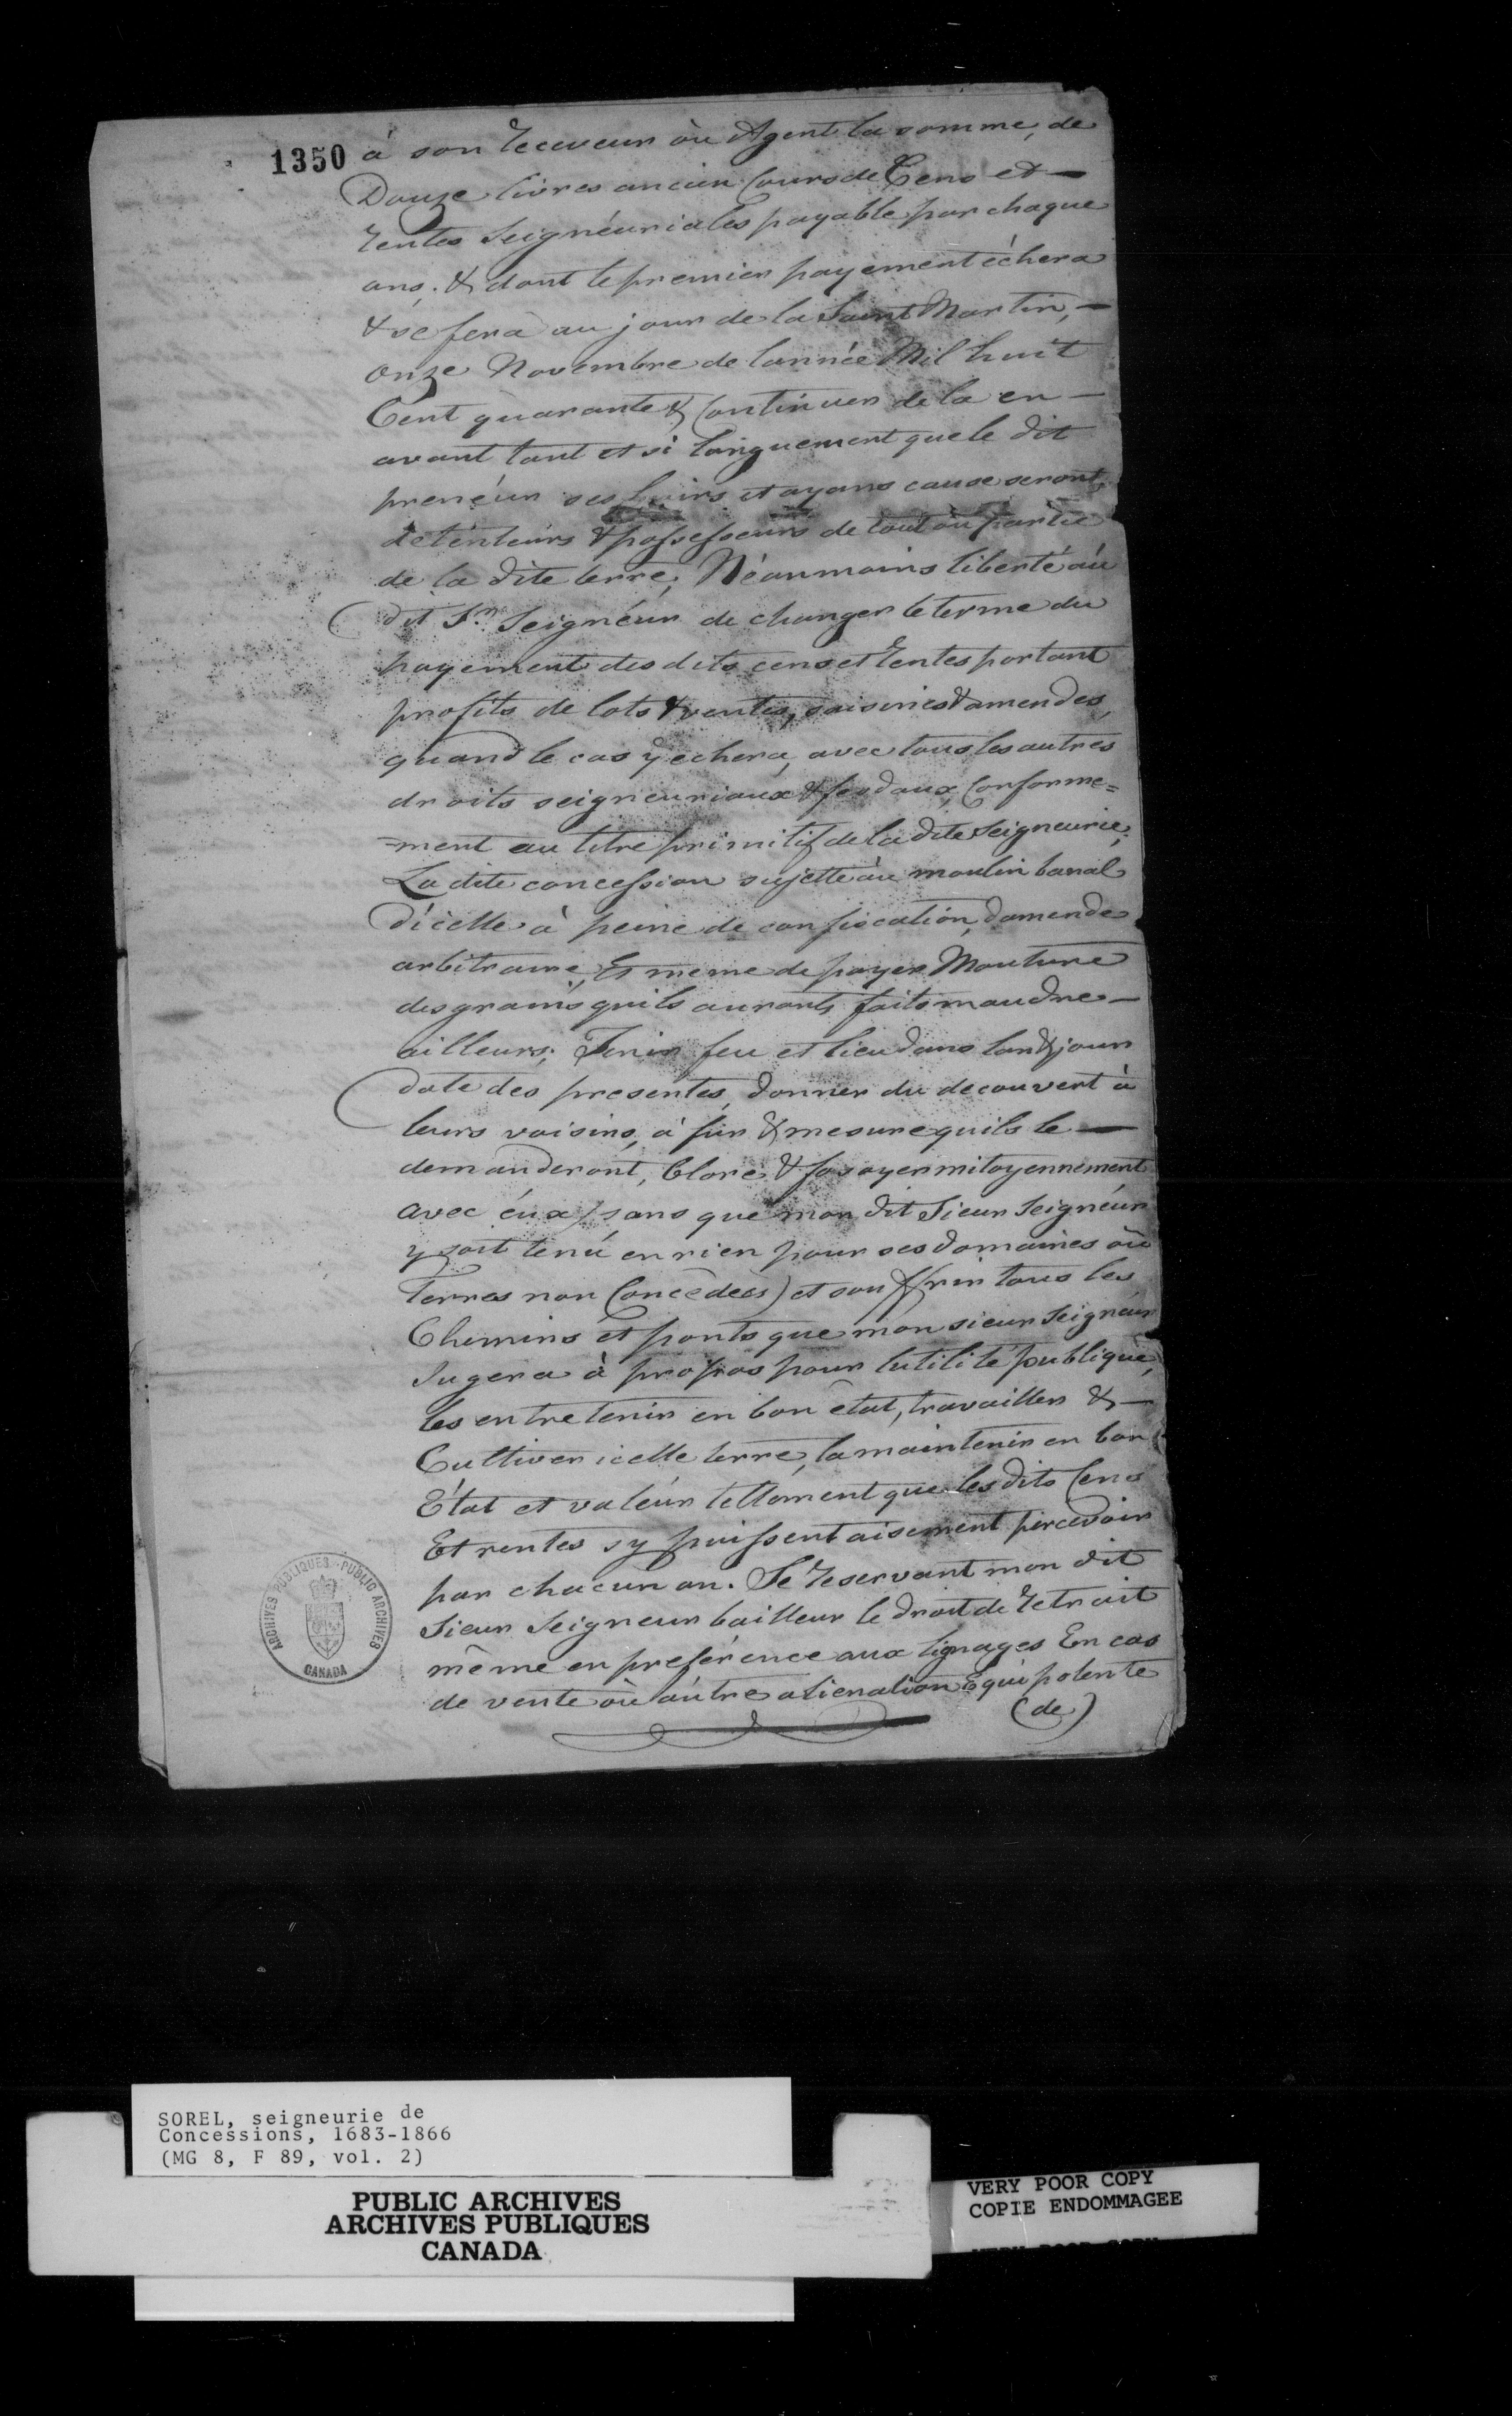 1350
à son receveur òu Agent la somme, de
Douze livres ancien Cours de Cens et —
rentes Seignéuriales payable par chaque
ans; & dont le premier payement échera
& se fera au jour de la Saint Martin, —
onze Novembre de lannée Mil huit
Cent quarante & Continuer de la en —
avant tant et si longuement que le dit
prenéur ses hoirs et ayans cause seront,
detenteurs & possesseurs de tout òu partie
de la dite terre, Néanmoins liberté áu
dit Sr. Seignéur de changer le terme du
payement des dits cens et rentes portant
profits de lots & ventes, saisines & amendes,
quand le cas y echera, avec tous les autres
droits seigneuriaux & feodaux, Conforme=
=ment au titre primitif de la dite Seigneurie;
La dite concession sujette àu moulin banal
d'icelle à peine de confiscation, damende
arbitraire, Et meme de payer Mouture
des grains quils auronts faits maudre —
ailleurs; Tenir feu et lieu dans lan & jour
date des presentes, donner du decouvert à
leurs voisins, à fur & mesure quils le —
demanderont, Clore & fosoyer mitoyennement
avec éux (sans que mon dit Sieur Seignéur
y soit tenú en rien pour ses domaines òu
Terres non Concèdeés) et souffrir tous les
Chemins et ponts que mon sieur Seignéur
Jugera à propos pour lutilité publique,
les entretenir en bon état, travailler & —
Cultiver icelle terre, la maintenir en bon
État et valéur tellement que les dits Cens
Et rentes sy puissent aisement percevoir
par chacun an. Se reservant mon dit
Sieur Seigneur bailleur le droit de retrait
même en preférence aux lignages En cas
de vente òu áutre alienation Equipolente
(de)
ARCHIVES PUBLIQUES · PUBLIC ARCHIVES
CANADA
SOREL, seigneurie de
Concessions, 1683-1866
(MG 8, F 89, vol. 2)
PUBLIC ARCHIVES
ARCHIVES PUBLIQUES
CANADA
VERY POOR COPY
COPIE ENDOMMAGEE
VERY POOR COPY